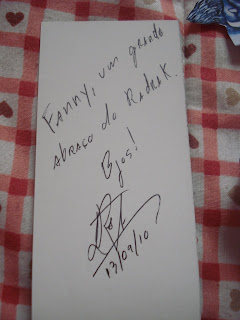 FANNY, UM GRANDE
ABRAÇO DO RADRAK.
Bjos!
13/09/10